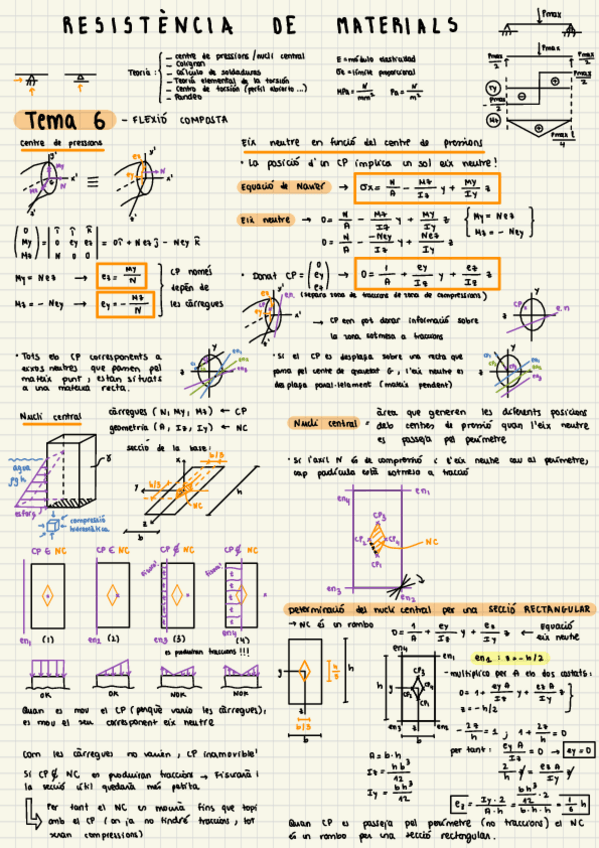 RESISTÈNCIA DE MATERIALS
Pmax
Teoria:
- centre de pressions / nucli central
- Colignon
- Cálculo de soldadures
- Teoria elemental de la torsión
- Centro de torsión (perfil abierto...)
- Pandeo
E = módulo elasticidad
σe = límite proporcional
MPa = N/mm² Pa = N/m²
Pmax/2 Pmax Pmax/2
Ty
Mz
Tema 6 - FLEXIÓ COMPOSTA
centre de pressions
My = Nez → ez = My/N
Mz = - Ney → ey = - Mz/N
CP només
depèn de
les càrregues
Eix neutre en funció del centre de pressions
· La posició d'un CP implica un sol eix neutre!
Equació de Navier → σx = N/A - Mz/Iz y + My/Iy z
Eix neutre → 0 = N/A - Mz/Iz y + My/Iy z
My = Nez
Mz = - Ney
0 = N/A - -Ney/Iz y + Nez/Iy z
· Donat CP = (0 ey ez) → 0 = 1/A + ey/Iz y + ez/Iy z
(separa zona de traccions de zona de compressions)
→ CP em pot donar informació sobre
la zona sotmesa a traccions
· Tots els CP corresponents a
eixos neutres que passen pel
mateix punt, estan situats
a una mateixa recta.
· Si el CP es desplaça sobre una recta que
passa pel centre de gravetat G, l'eix neutre es
desplaça paral·lelament (mateix pendent)
Nucli central
càrregues (N, My, Mz) ← CP
geometria (A, Iz, Iy) ← NC
secció de la base:
b/3
h
NC
b
agua
ρgh
esforç
compressió
hidrostàtica
Nucli central = àrea que generen les diferents posicions
dels centres de pressió quan l'eix neutre
es passeja pel perímetre
· Si l'axil N és de compressió i l'eix neutre cau al perímetre,
cap partícula està sotmesa a tracció
en4 en1
CP3
CP2 CP4
CP1
NC
en3 en2
CP ∈ NC CP ∈ NC CP ∉ NC CP ∉ NC
fissura! fissura!
en1 (1) en2 (2) en3 (3) en4 (4)
es produiran traccions !!!
OK OK NOK NOK
Quan es mou el CP (perquè vario les càrregues),
es mou el seu corresponent eix neutre
Com les càrregues no varien, CP inamovible!
Si CP ∉ NC es produiran traccions → Fisurarà i
la secció útil quedarà més petita
Per tant el NC es mourà fins que topi
amb el CP (on ja no tindré traccions, tot
seran compressions)
Determinació del nucli central per una SECCIÓ RECTANGULAR
→ NC és un rombo
0 = 1/A + ey/Iz y + ez/Iy z ← Equació
eix neutre
en1 : z = -h/2
- multiplico per A els dos costats:
0 = 1 + ey A/Iz y + ez A/Iy z
z = -h/2
per tant: ey A/Iz = 0 → ey = 0
b/3
A = b·h
Iz = hb³/12
Iy = bh³/12
ez = Iy·2/A·h = bh³/12·2/b·h·h = 1/6 h
Quan CP es passeja pel perímetre (no traccions) el NC
és un rombo per una secció rectangular.